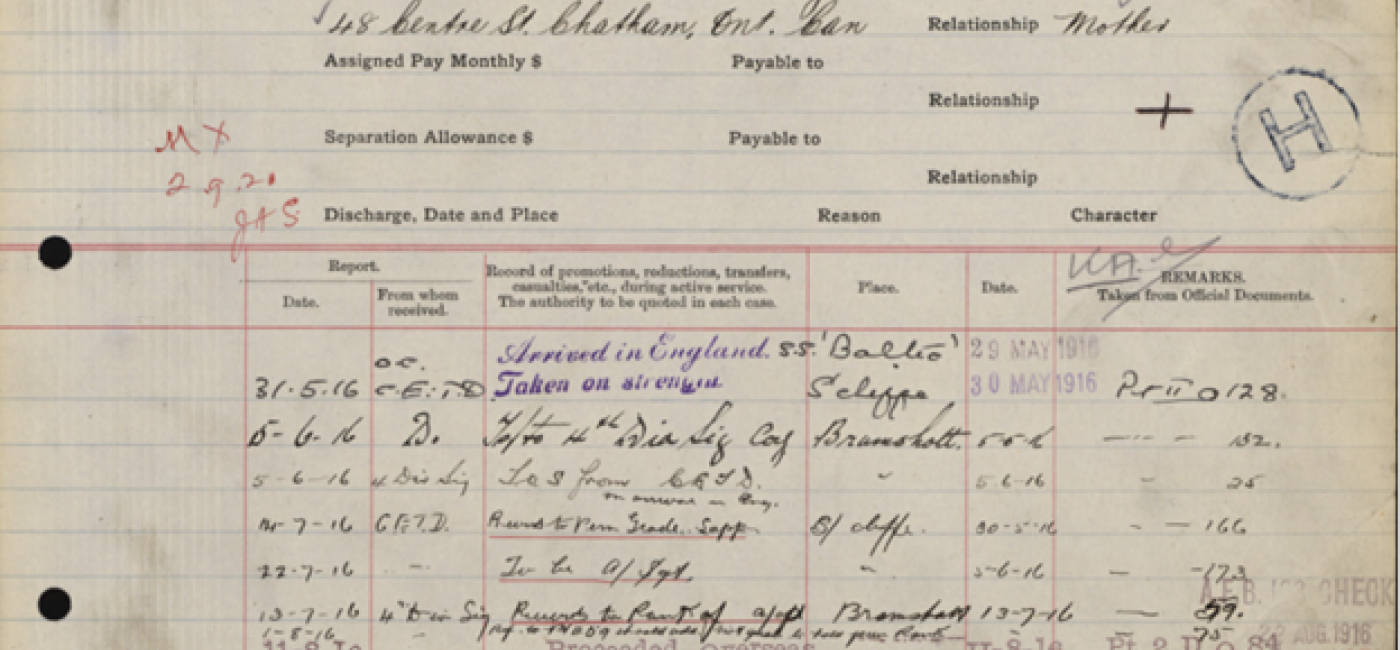 48 Centre St. Chatham, Ont. Can Relationship Mother
Assigned Pay Monthly $ Payable to
Relationship
H
M X
Separation Allowance $ Payable to
2.9.20
Relationship
JAS
Discharge, Date and Place Reason Character
Report.
Record of promotions, reductions, transfers, casualties, etc., during active service. The authority to be quoted in each case.
Date. From whom received. Place. Date. REMARKS. Taken from Official Documents.
Arrived in England. SS. 'Baltic' 29 MAY 1916
31.5.16 O.C. C.E.T.D Taken on strength S'cliffe 30 MAY 1916 Pt II O 128.
5-6-16 D. 4th Div Sig Coy Bramshott. 132.
5-6-16 4 Div Sig TOS from C.E.T.D. " 5-6-16 - 25
on arrival in Eng.
7-16 C.E.T.D. Reverts to Perm Grade. Sapp S/cliffe. 30-5-16 - - 166
22-7-16 - To be A/Sgt. " 5-6-16 - 173
13-7-16 4th Div Sig Reverts to Rank of Bramshott 13-7-16 - 59.
1-8-16 75
Proceeded overseas 11-8-16 Pt 2 D.O 84
CHECK
22 AUG. 1916